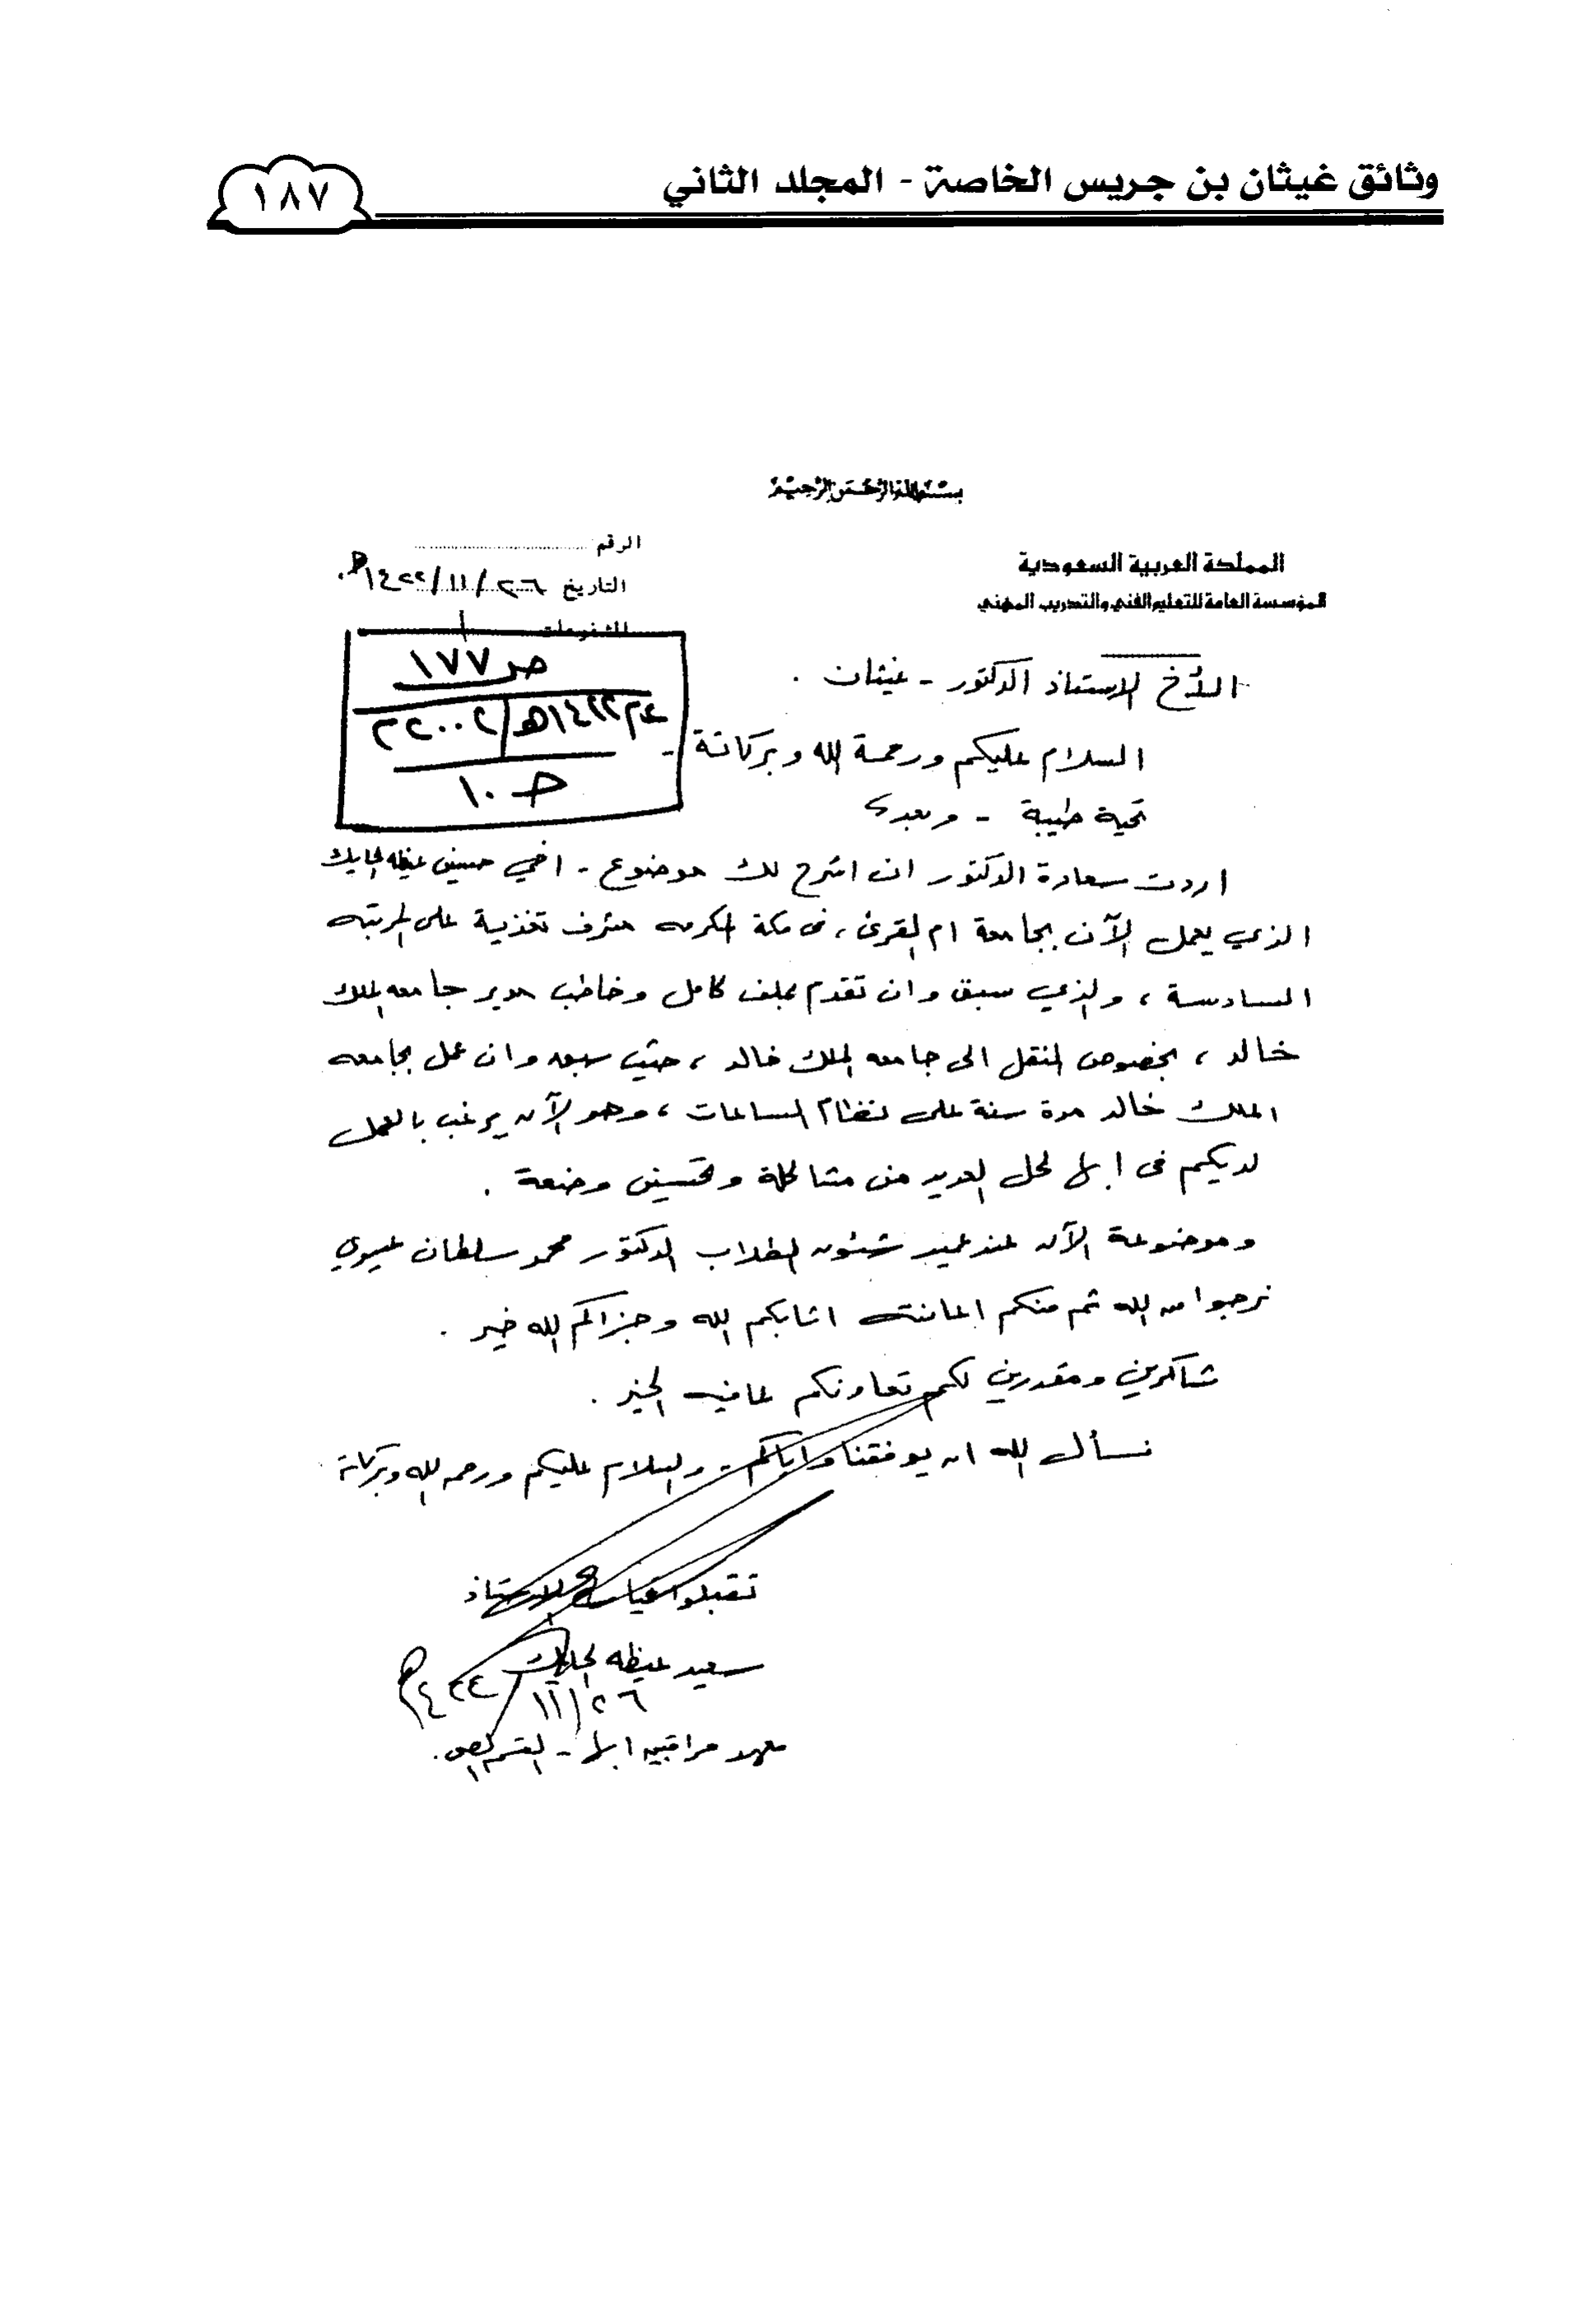 وثائق غيثان بن جريس الخاصة - المجلد الثاني
١٨٧
بسم الله الرحمن الرحيم
المملكة العربية السعودية
المؤسسة العامة للتعليم الفني والتدريب المهني
الرقم
التاريخ ٢٦/١١/١٤٢٢هـ
المشفوعات
ص ١٧٧
عام ١٤٢٢هـ/٢٠٠٢م
حـ ١٠
الأخ الاستاذ الدكتور - غيثان .
السلام عليكم ورحمة الله وبركاتة -
تحية طيبة - وبعد ،
اردت سعادة الدكتور ان اشرح لك موضوع - اخي حسين
الذي يعمل الآن بجامعة ام القرى ، في مكة المكرمه مشرف تغذية على المرتبه
السادسة ، والذي سبق وان تقدم بملف كامل وخاطب مدير جامعه الملك
خالد ، بخصوص النقل الى جامعه الملك خالد ، حيث سبق وان عمل بجامعه
الملك خالد مدة سنة على نظام الساعات ، وهو الآن يرغب بالعمل
لديكم في ابها لحل العديد من مشاكلة وتحسين وضعة .
وموضوعة الآن عند عميد شئون الطلاب الدكتور محمد سلطان عسيري
نرجوا من الله ثم منكم اعانته اثابكم الله وجزاكم الله خير .
شاكرين ومقدرين لكم تعاونكم لما فيه الخير .
نسأل الله ان يوفقنا واياكم - والسلام عليكم ورحمه الله وبركاتة
تقبلوا
سعيد
٢٦/١١/١٤٢٢هـ
معهد مراقبين ابها - القسم الصحي .